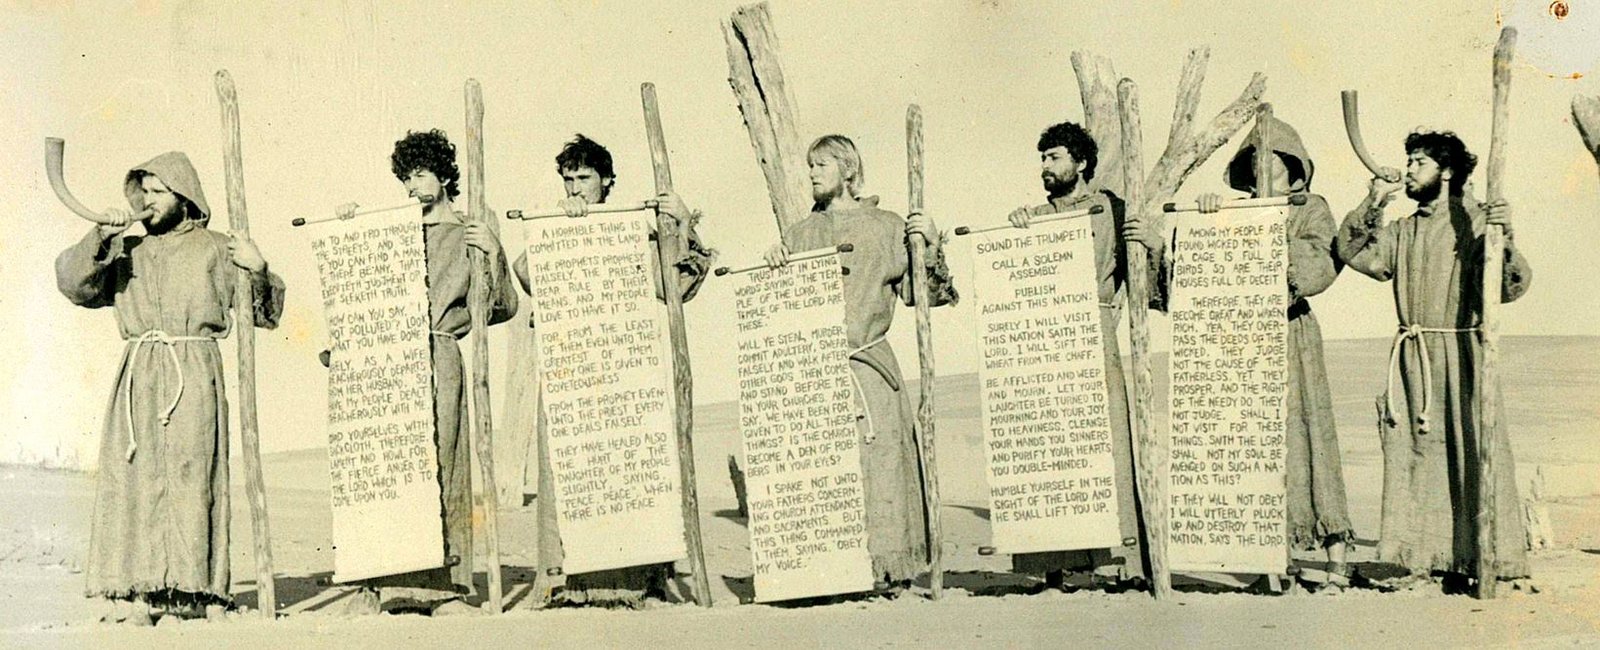 RUN TO AND FRO THROUGH
THE STREETS, AND SEE
IF YOU CAN FIND A MAN,
IF THERE BE ANY, THAT
EXECUTETH JUDGMENT OR
THAT SEEKETH TRUTH.
HOW CAN YOU SAY, "I
NOT POLLUTED"? LOOK
WHAT YOU HAVE DONE.
AS A WIFE
TREACHEROUSLY DEPARTS
FROM HER HUSBAND, SO
HAVE MY PEOPLE DEALT
TREACHEROUSLY WITH ME.
GIRD YOURSELVES WITH
SACKCLOTH, THEREFORE,
LAMENT AND HOWL FOR
THE FIERCE ANGER OF
THE LORD WHICH IS TO
COME UPON YOU.
A HORRIBLE THING IS
COMMITTED IN THE LAND:
THE PROPHETS PROPHESY
FALSELY, THE PRIESTS
BEAR RULE BY THEIR
MEANS, AND MY PEOPLE
LOVE TO HAVE IT SO.
FOR, FROM THE LEAST
OF THEM EVEN UNTO THE
GREATEST OF THEM,
EVERY ONE IS GIVEN TO
COVETEOUSNESS
FROM THE PROPHET EVEN
UNTO THE PRIEST EVERY
ONE DEALS FALSELY.
THEY HAVE HEALED ALSO
THE HURT OF THE
DAUGHTER OF MY PEOPLE
SLIGHTLY, SAYING,
"PEACE, PEACE", WHEN
THERE IS NO PEACE.
TRUST NOT IN LYING
WORDS SAYING "THE TEM-
PLE OF THE LORD, THE
TEMPLE OF THE LORD ARE
THESE."
WILL YE STEAL, MURDER,
COMMIT ADULTERY, SWEAR
FALSELY AND WALK AFTER
OTHER GODS THEN COME
AND STAND BEFORE ME
IN YOUR CHURCHES, AND
SAY, WE HAVE BEEN FOR
GIVEN TO DO ALL THESE
THINGS? IS THE CHURCH
BECOME A DEN OF ROB-
BERS IN YOUR EYES?
I SPAKE NOT UNTO
YOUR FATHERS CONCERN-
ING CHURCH ATTENDANCE
AND SACRAMENTS BUT
THIS THING COMMANDED
I THEM, SAYING, "OBEY
MY VOICE."
SOUND THE TRUMPET!
CALL A SOLEMN
ASSEMBLY.
PUBLISH
AGAINST THIS NATION:
SURELY I WILL VISIT
THIS NATION SAITH THE
LORD. I WILL SIFT THE
WHEAT FROM THE CHAFF.
BE AFFLICTED AND WEEP
AND MOURN. LET YOUR
LAUGHTER BE TURNED TO
MOURNING AND YOUR JOY
TO HEAVINESS. CLEANSE
YOUR HANDS YOU SINNERS
AND PURIFY YOUR HEARTS
YOU DOUBLE-MINDED.
HUMBLE YOURSELF IN THE
SIGHT OF THE LORD AND
HE SHALL LIFT YOU UP.
AMONG MY PEOPLE ARE
FOUND WICKED MEN. AS
A CAGE IS FULL OF
BIRDS, SO ARE THEIR
HOUSES FULL OF DECEIT
THEREFORE, THEY ARE
BECOME GREAT AND WAXEN
RICH. YEA, THEY OVER-
PASS THE DEEDS OF THE
WICKED, THEY JUDGE
NOT THE CAUSE OF THE
FATHERLESS, YET THEY
PROSPER, AND THE RIGHT
OF THE NEEDY DO THEY
NOT JUDGE. SHALL I
NOT VISIT FOR THESE
THINGS, SAITH THE LORD.
SHALL NOT MY SOUL BE
AVENGED ON SUCH A NA-
TION AS THIS?
IF THEY WILL NOT OBEY
I WILL UTTERLY PLUCK
UP AND DESTROY THAT
NATION, SAYS THE LORD.